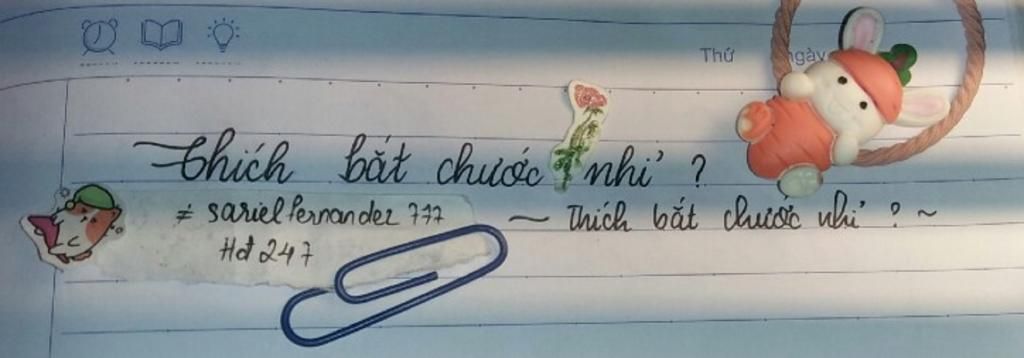 Thứ ngày
Thích bắt chước nhỉ ?
≠ sarielfernandez 777 ~ Thích bắt chước nhỉ ? ~
Hđ 247